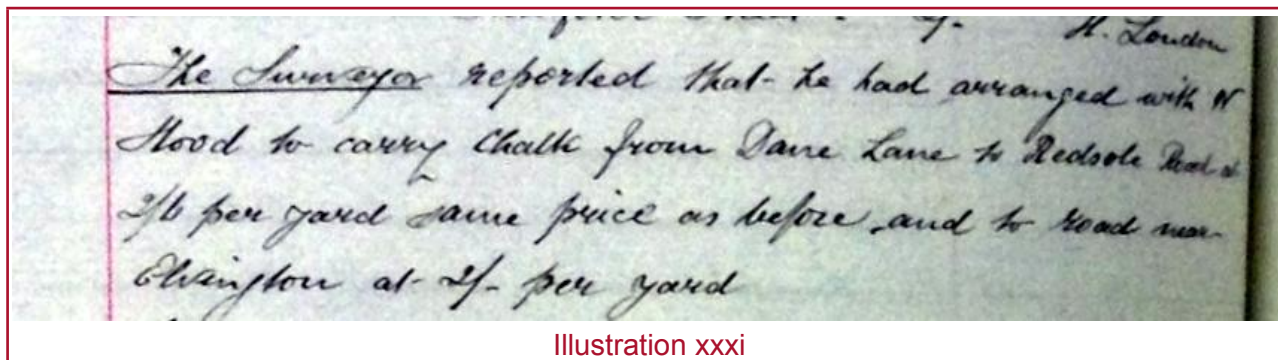 H. London
The Surveyor reported that he had arranged with W
Hood to carry Chalk from Dane Lane to Redsole Road at
2/6 per yard same price as before, and to road near
Elvington at 2/- per yard
Illustration xxxi